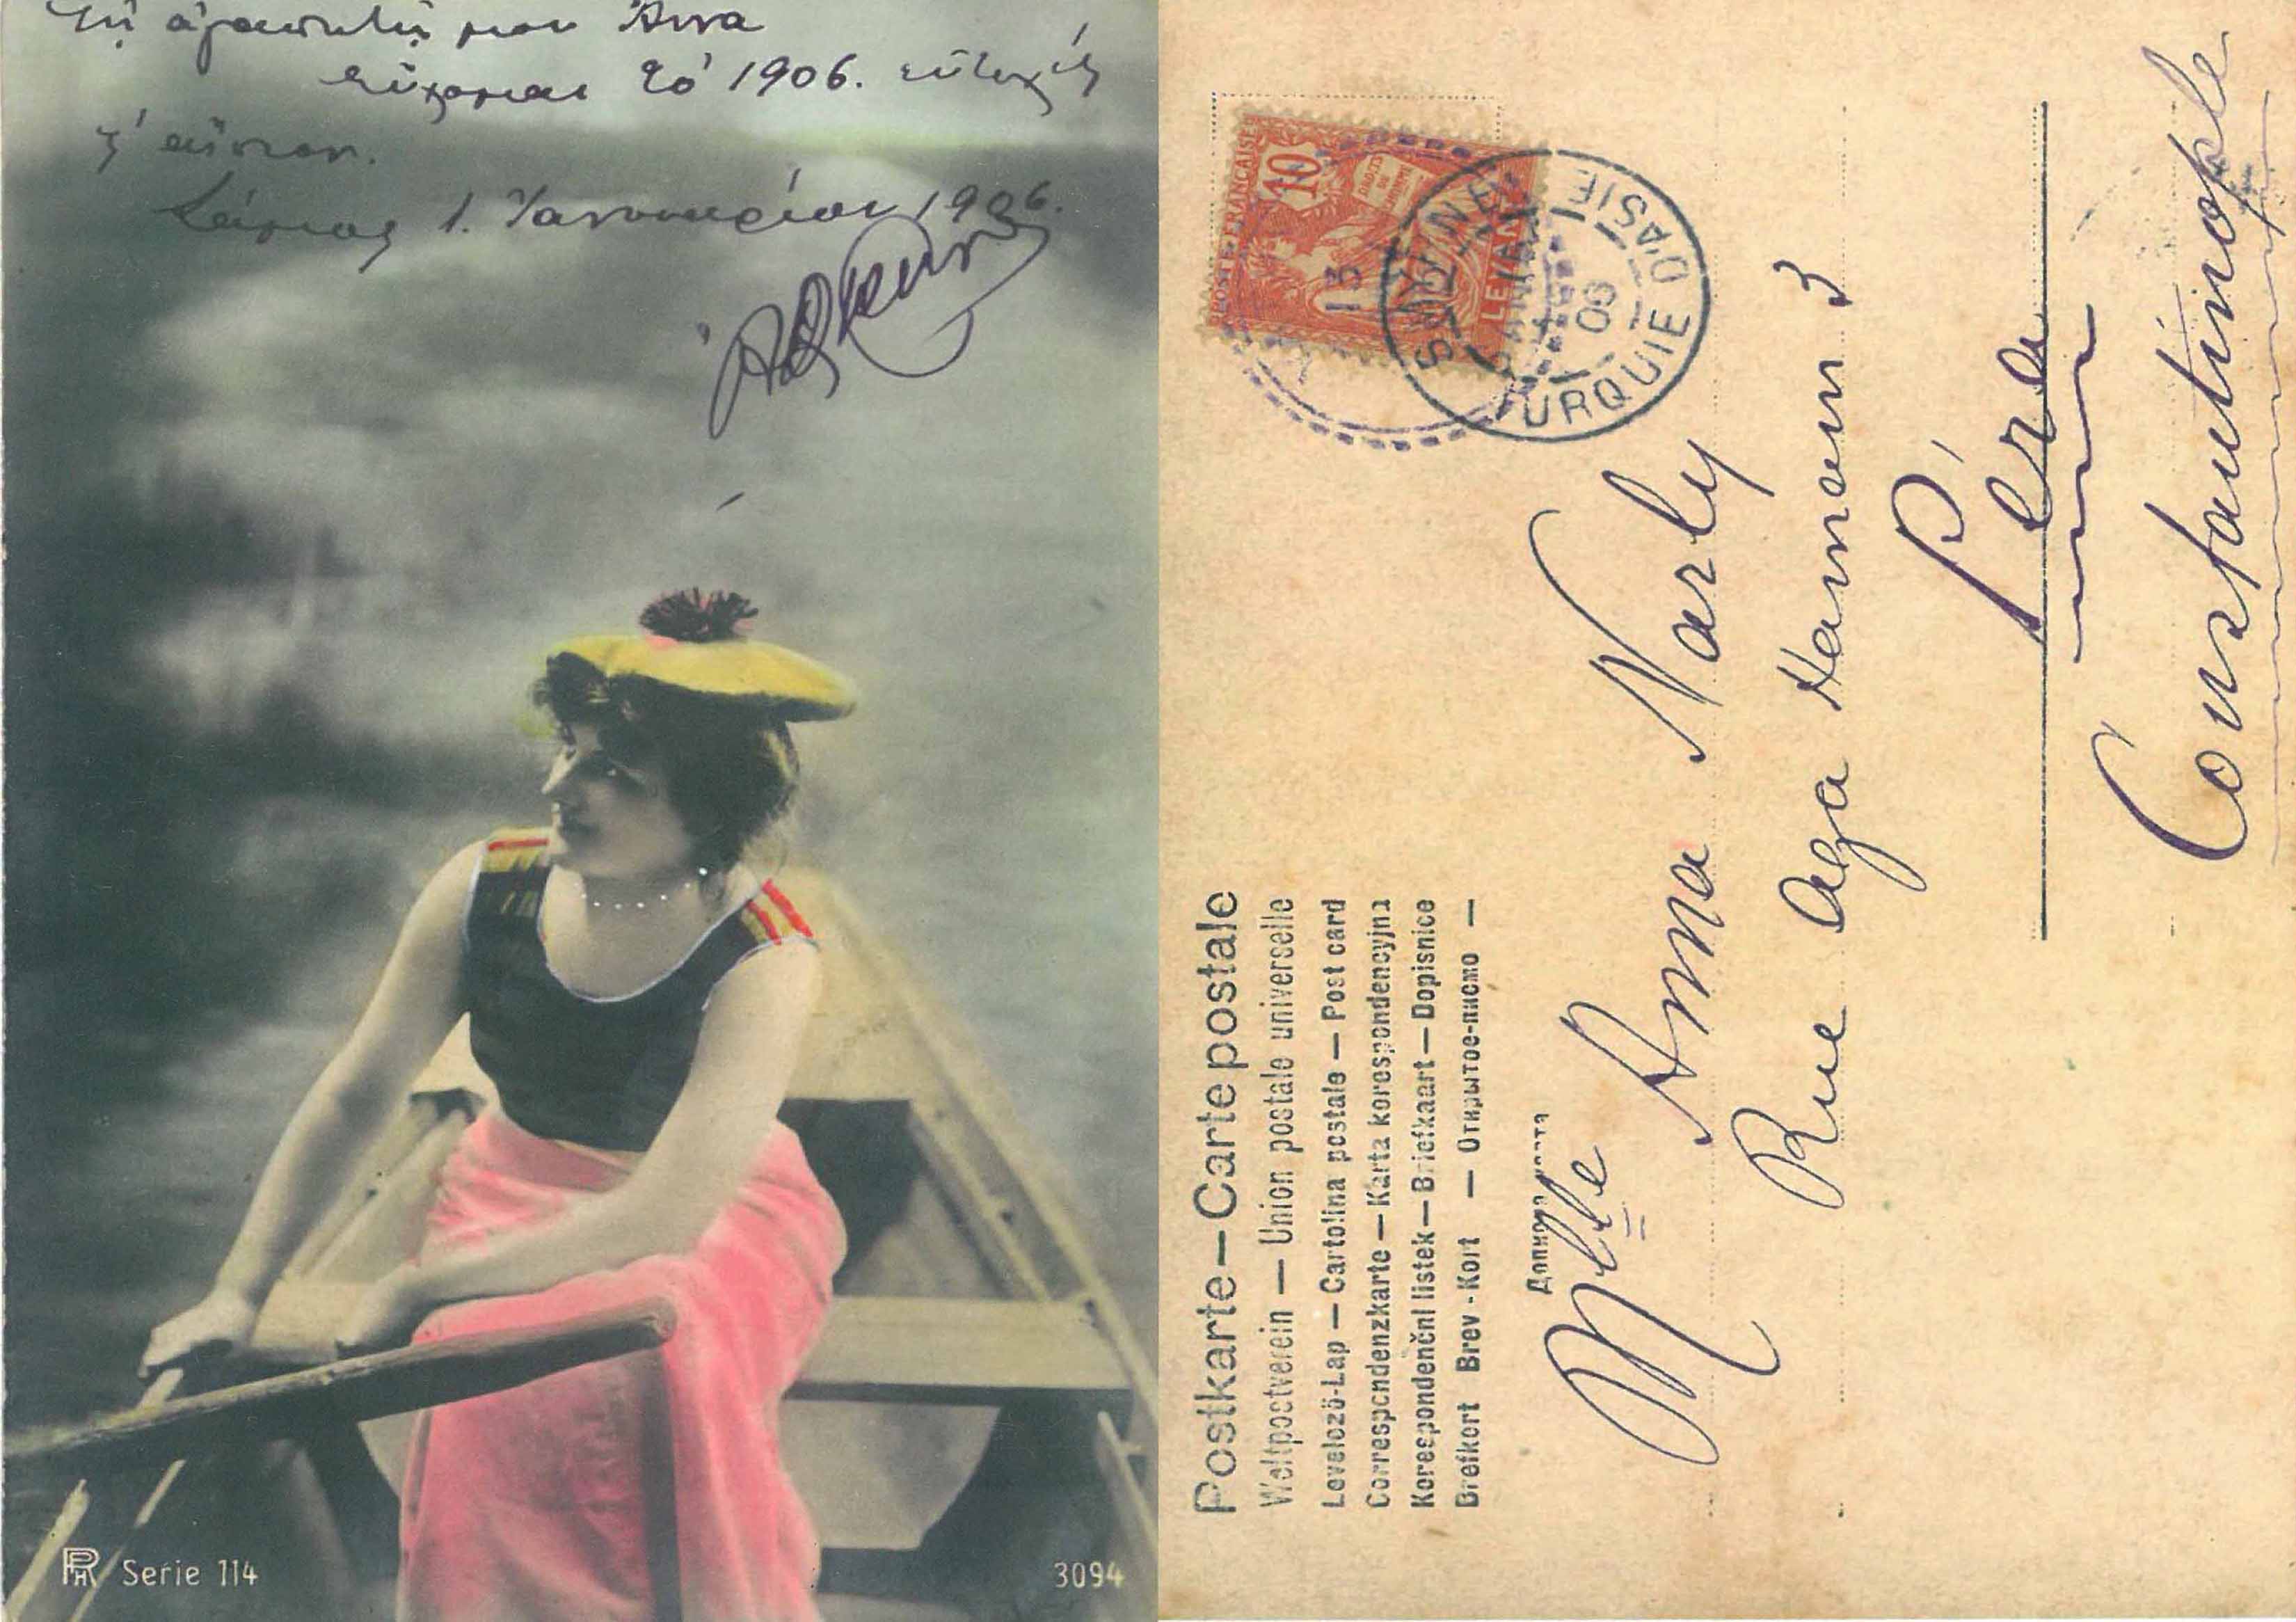 Τῇ ἀγαπητῇ μου Ἄννα
εὔχομαι τὸ 1906. εὐτυχὲς
Σάμος 1. Ἰανουαρίου 1906.
PH Serie 114
3094
Postkarte — Carte postale
Weltpostverein — Union postale universelle
Levelező-Lap — Cartolina postale — Post card
Correspondenzkarte — Karta korespondencyjna
Korespondenční listek — Briefkaart — Dopisnice
Brefkort Brev-Kort — Открытое-письмо —
Дописна карта
POSTE FRANÇAISE
10
DROITS DE L'HOMME
LEVANT
SMYRNE
13
JANV
06
TURQUIE D'ASIE
Mlle Anna Narly
Rue Aga Hamam 3
Péra
Constantinople